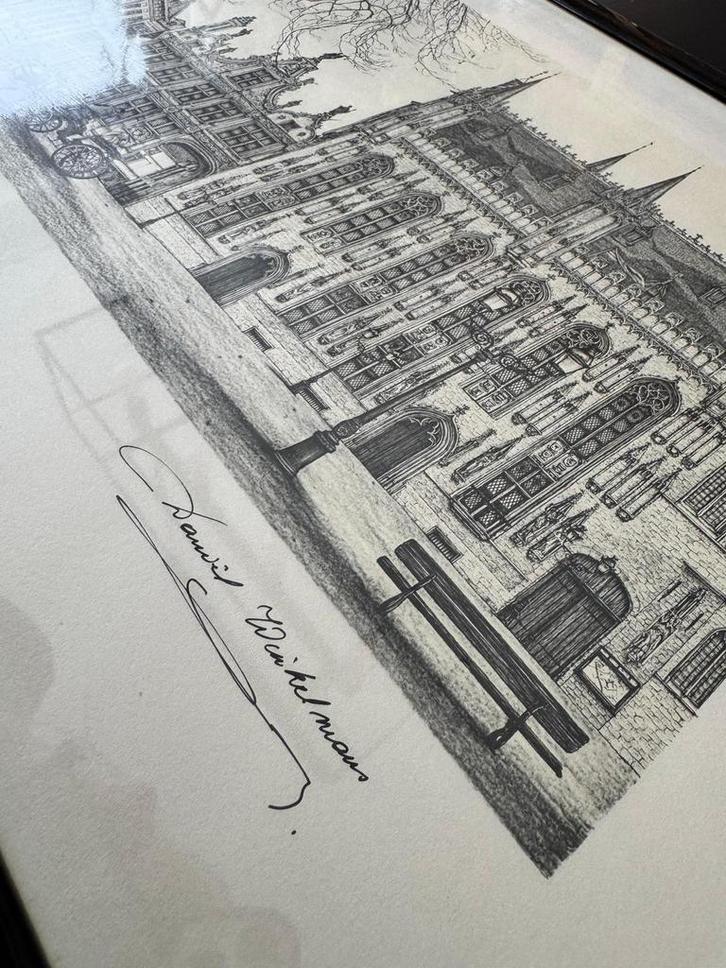 Daniël Winkelmans